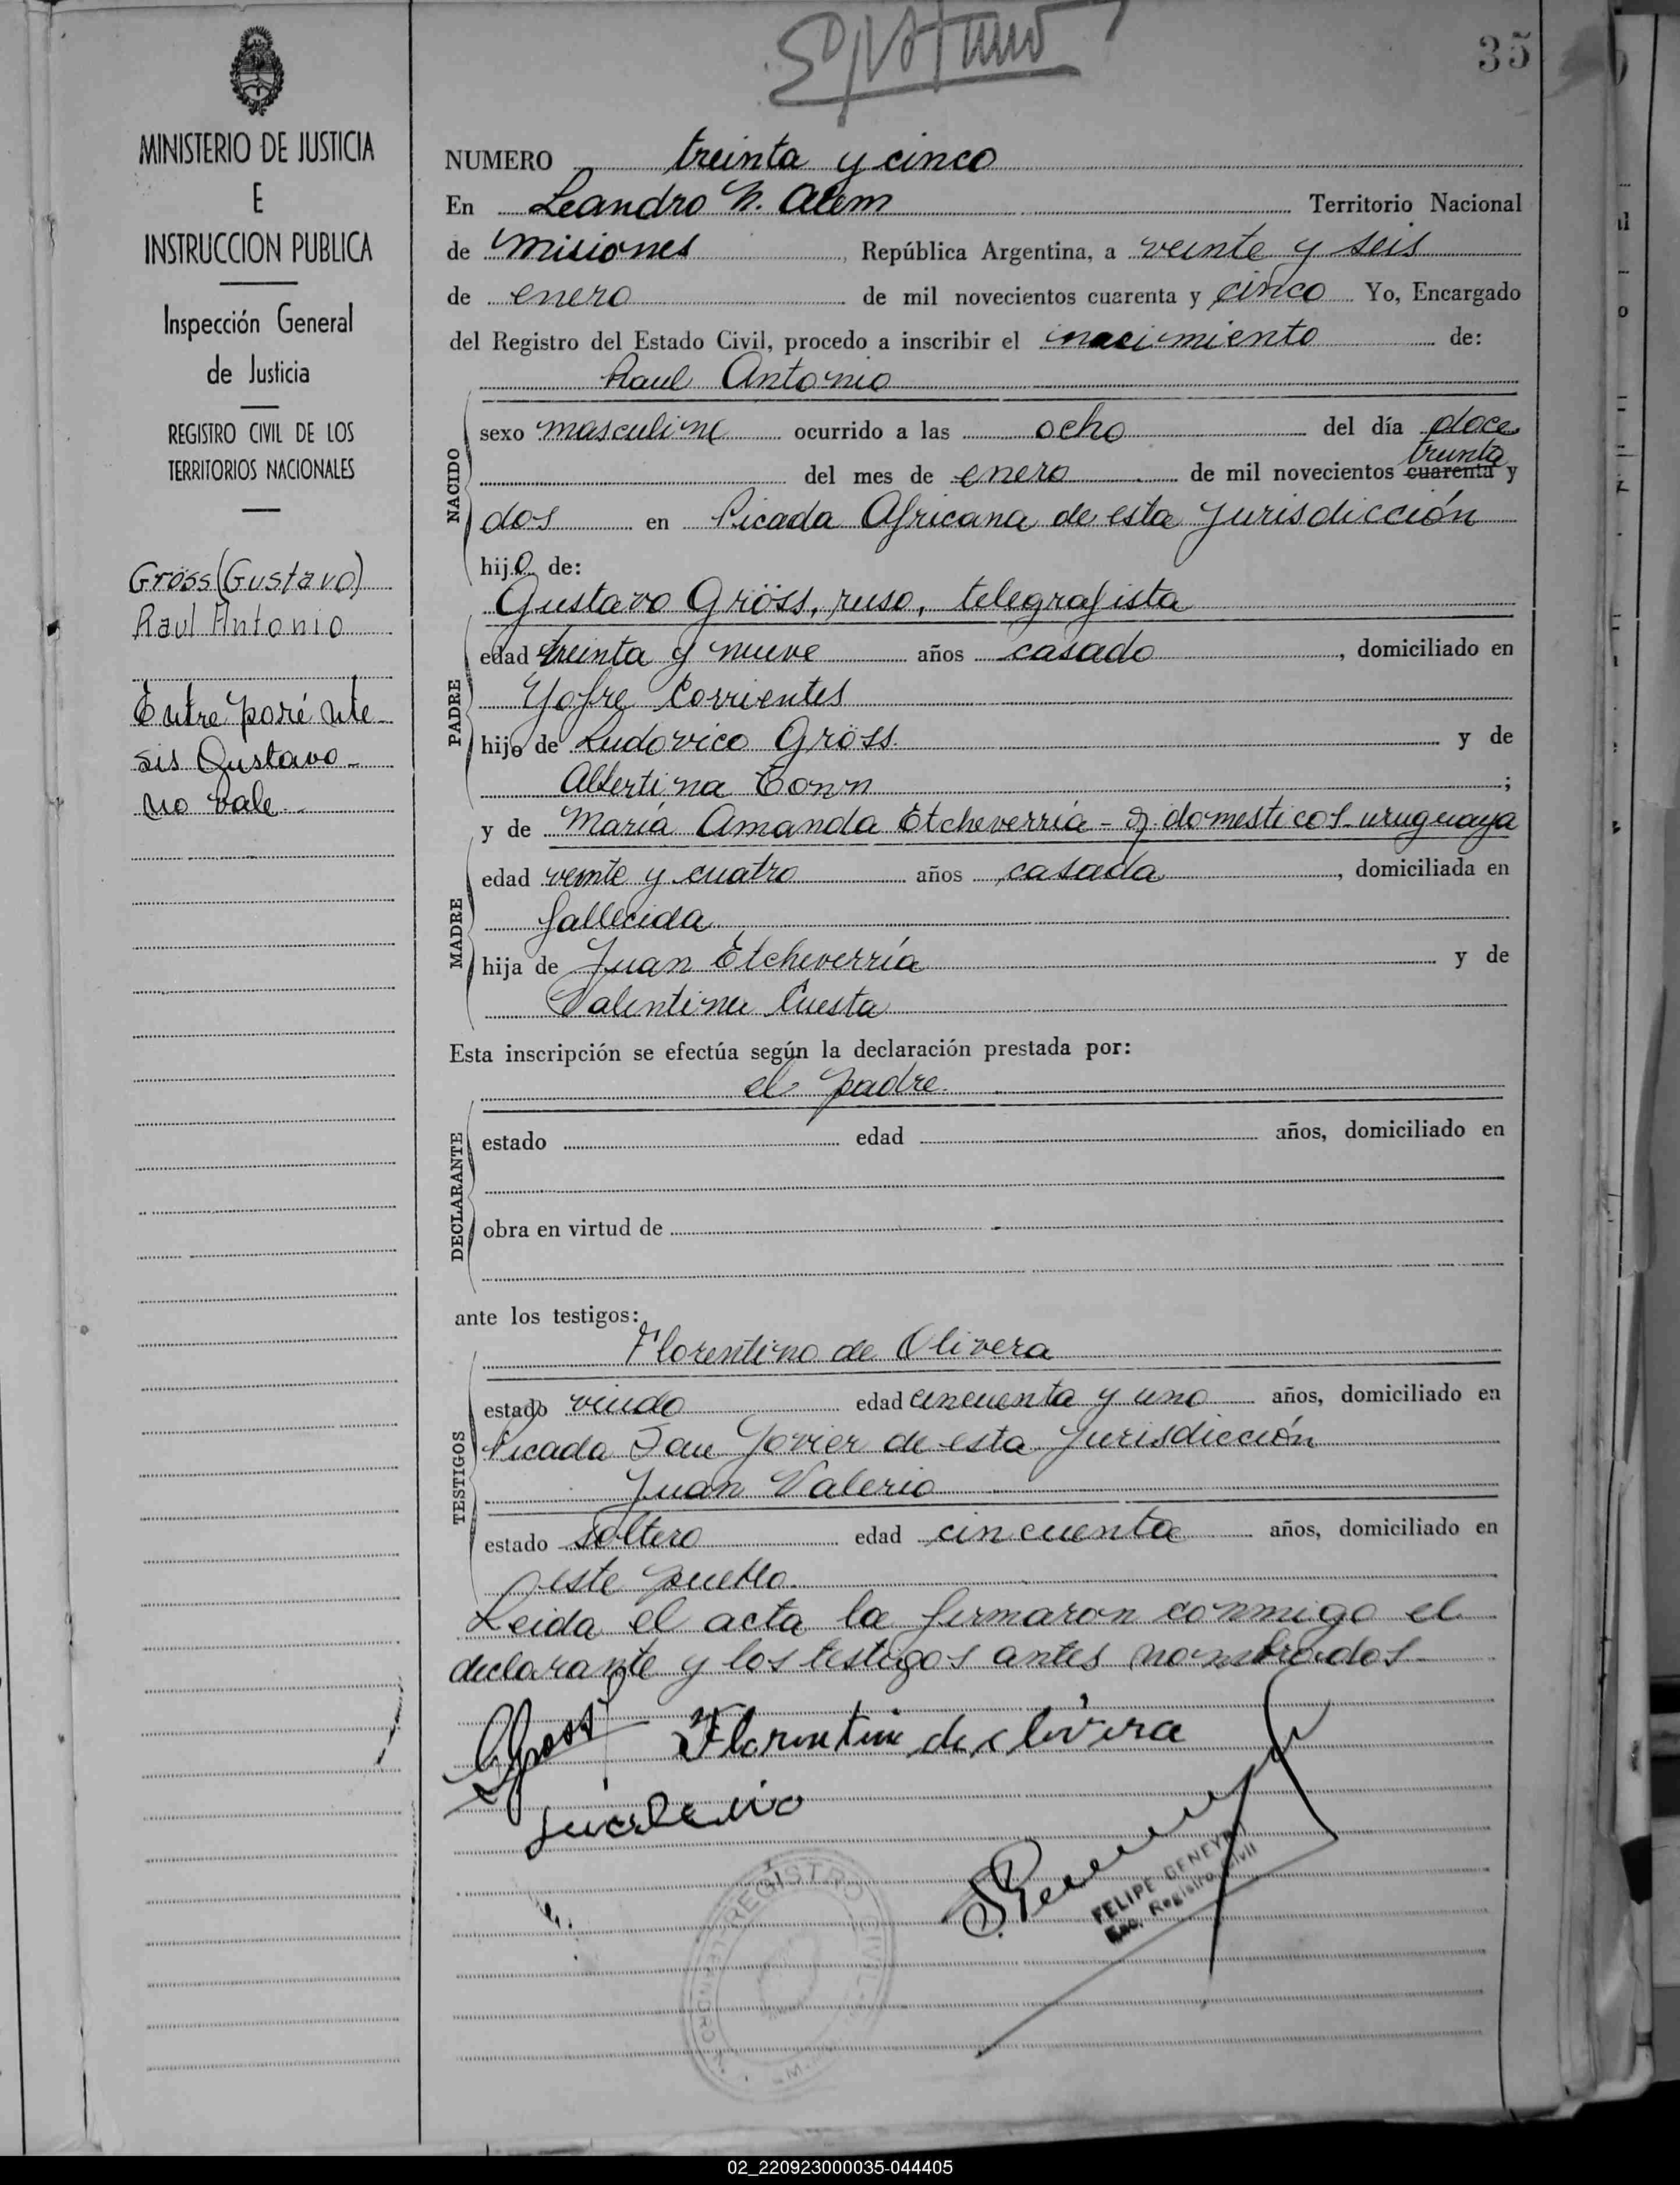 35
MINISTERIO DE JUSTICIA
E
INSTRUCCION PUBLICA
Inspección General
de Justicia
REGISTRO CIVIL DE LOS
TERRITORIOS NACIONALES
Gröss (Gustavo)
Raul Antonio
Entre paré nte
sis Gustavo
no vale
NUMERO treinta y cinco
En Leandro N. Alem Territorio Nacional
de Misiones, República Argentina, a veinte y seis
de enero de mil novecientos cuarenta y cinco Yo, Encargado
del Registro del Estado Civil, procedo a inscribir el nacimiento de:
Raul Antonio
NACIDO
sexo masculino ocurrido a las ocho del día doce
treinta
del mes de enero de mil novecientos cuarenta y
dos en Picada Africana de esta Jurisdicción
hijo de:
Gustavo Gröss, ruso, telegrafista
PADRE
edad treinta y nueve años casado, domiciliado en
Yofre Corrientes
hijo de Ludovico Gröss y de
Albertina Tonn;
y de María Amanda Etcheverría - q. domesticos - uruguaya
MADRE
edad veinte y cuatro años casada, domiciliada en
fallecida
hija de Juan Etcheverría y de
Valentina Cuesta
Esta inscripción se efectúa según la declaración prestada por:
el padre.
DECLARANTE
estado edad años, domiciliado en
obra en virtud de
ante los testigos:
Florentino de Olivera
TESTIGOS
estado viudo edad cincuenta y uno años, domiciliado en
Picada San Javier de esta Jurisdicción
Juan Valerio
estado soltero edad cincuenta años, domiciliado en
este pueblo.
Leida el acta la firmaron conmigo el
declarante y los testigos antes nombrados
GGross Florentin de olivera
FELIPE GENEYRO
Enc. Registro Civil
REGISTRO CIVIL
02_220923000035-044405